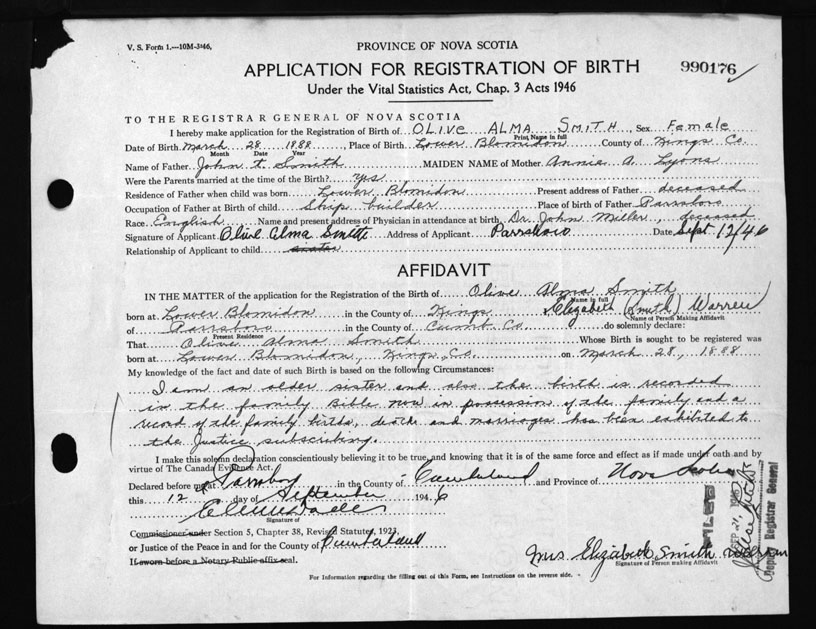 V. S. Form 1.—10M-3-46.
PROVINCE OF NOVA SCOTIA
APPLICATION FOR REGISTRATION OF BIRTH
990176
Under the Vital Statistics Act, Chap. 3 Acts 1946
TO THE REGISTRAR GENERAL OF NOVA SCOTIA
I hereby make application for the Registration of Birth of OLIVE ALMA SMITH Sex Female
Print Name in full
Date of Birth March 28 1888, Place of Birth Lower Blomidon County of Kings Co.
Month Date Year
Name of Father John t. Smith MAIDEN NAME of Mother Annie A. Lyons
Were the Parents married at the time of the Birth? Yes
Residence of Father when child was born Lower Blomidon Present address of Father deceased
Occupation of Father at Birth of child Ship builder Place of birth of Father Parrsboro
Race English Name and present address of Physician in attendance at birth Dr. John Miller, deceased
Signature of Applicant Olive Alma Smith Address of Applicant Parrsboro Date Sept 12/46
Relationship of Applicant to child sister
AFFIDAVIT
IN THE MATTER of the application for the Registration of the Birth of Olive Alma Smith
Name in full
born at Lower Blomidon in the County of Kings I, Elizabeth (Smith) Warren
Name of Person Making Affidavit
of Parrsboro in the County of Cumb. Co. do solemnly declare:
Present Residence
That Olive Alma Smith Whose Birth is sought to be registered was
born at Lower Blomidon, Kings, Co. on March 28, 1888
My knowledge of the fact and date of such Birth is based on the following Circumstances:
I am an older sister and also the birth is recorded
in the family Bible now in possession of the family and a
record of the family births, deaths and marriages has been exhibited to
the Justice subscribing.
I make this solemn declaration conscientiously believing it to be true, and knowing that it is of the same force and effect as if made under oath and by
virtue of The Canada Evidence Act.
Declared before me at Parrsboro in the County of Cumberland and Province of Nova Scotia
this 12 day of September 1946
Signature of
Commissioner under Section 5, Chapter 38, Revised Statutes, 1923,
or Justice of the Peace in and for the County of Cumberland
If sworn before a Notary Public affix seal.
Mrs. Elizabeth Smith Warren
Signature of Person making Affidavit
For Information regarding the filling out of this Form, see Instructions on the reverse side.
FILED
Deputy Registrar General